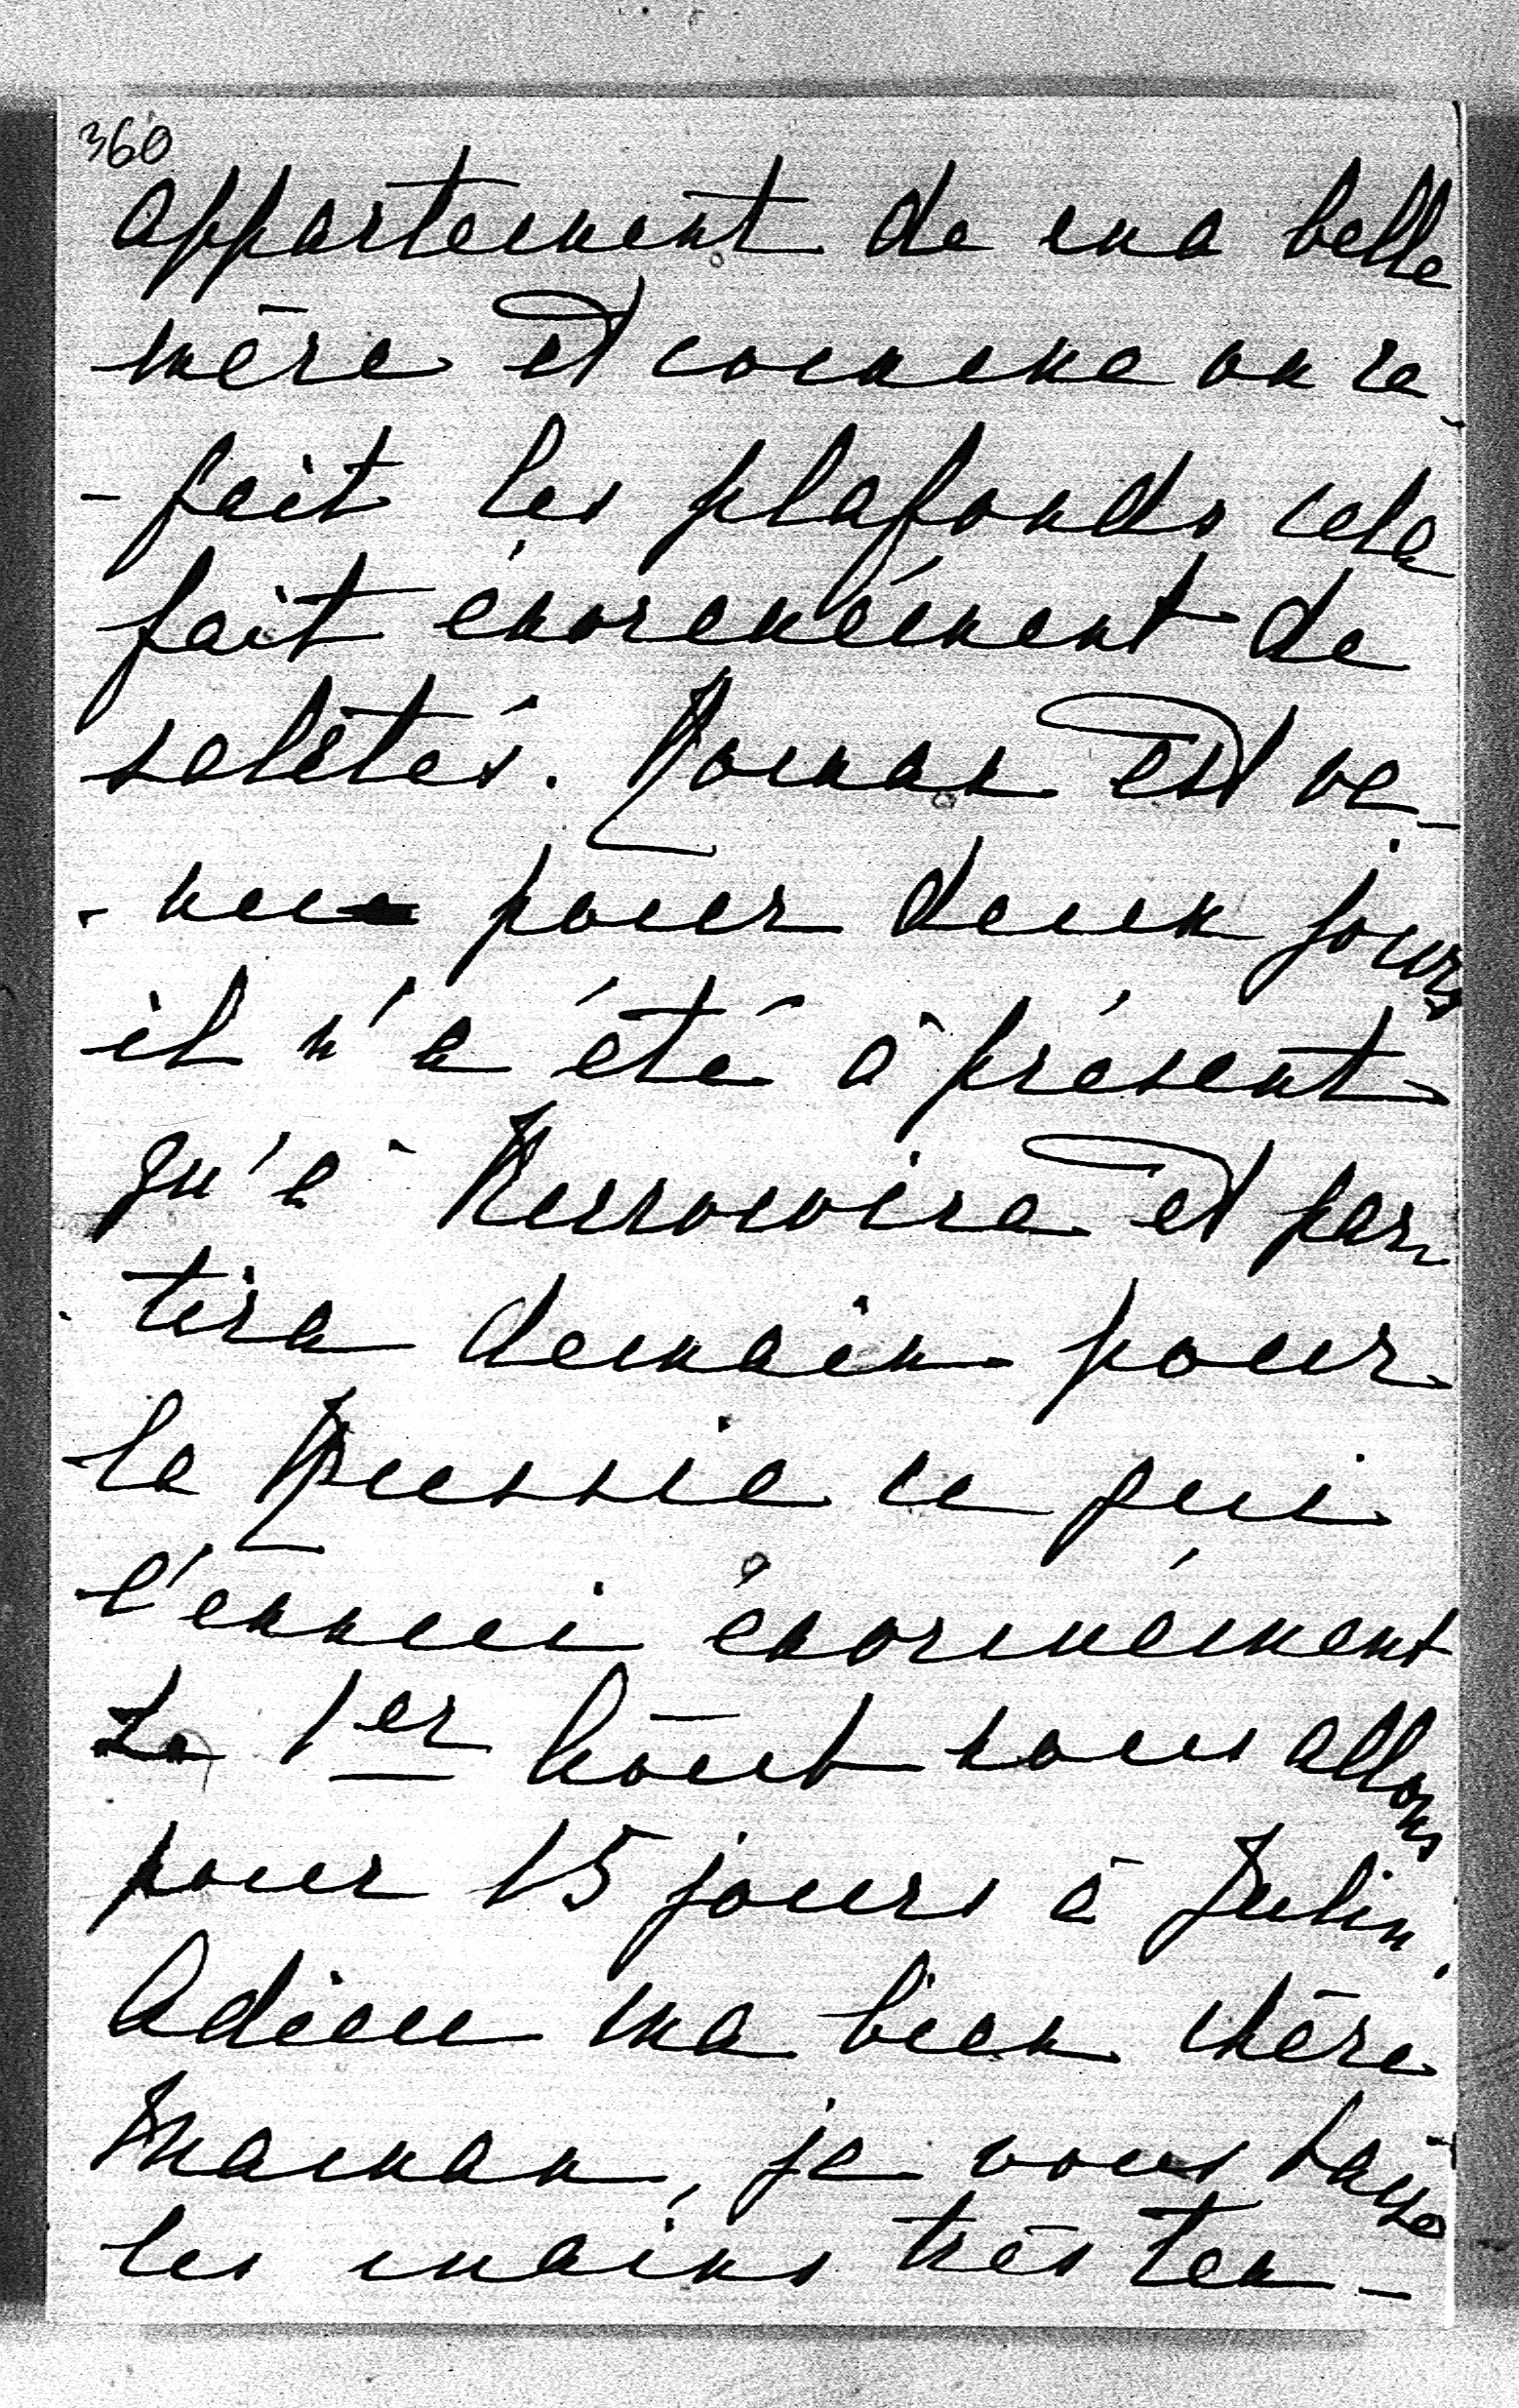 360
appartement de ma belle
mère et comme on re-
-fait les plafonds cela
fait énormément de
saletés. Roman est ve-
-nu pour deux jours
il n'a été à présent
qu'à Kurrowira et par-
tira demain pour
la Russie ce qui
l'ennui énormément
Le 1er Août nous allons
pour 15 jours à Julin.
Adieu ma bien chère
Maman, je vous baise
les mains très ten-